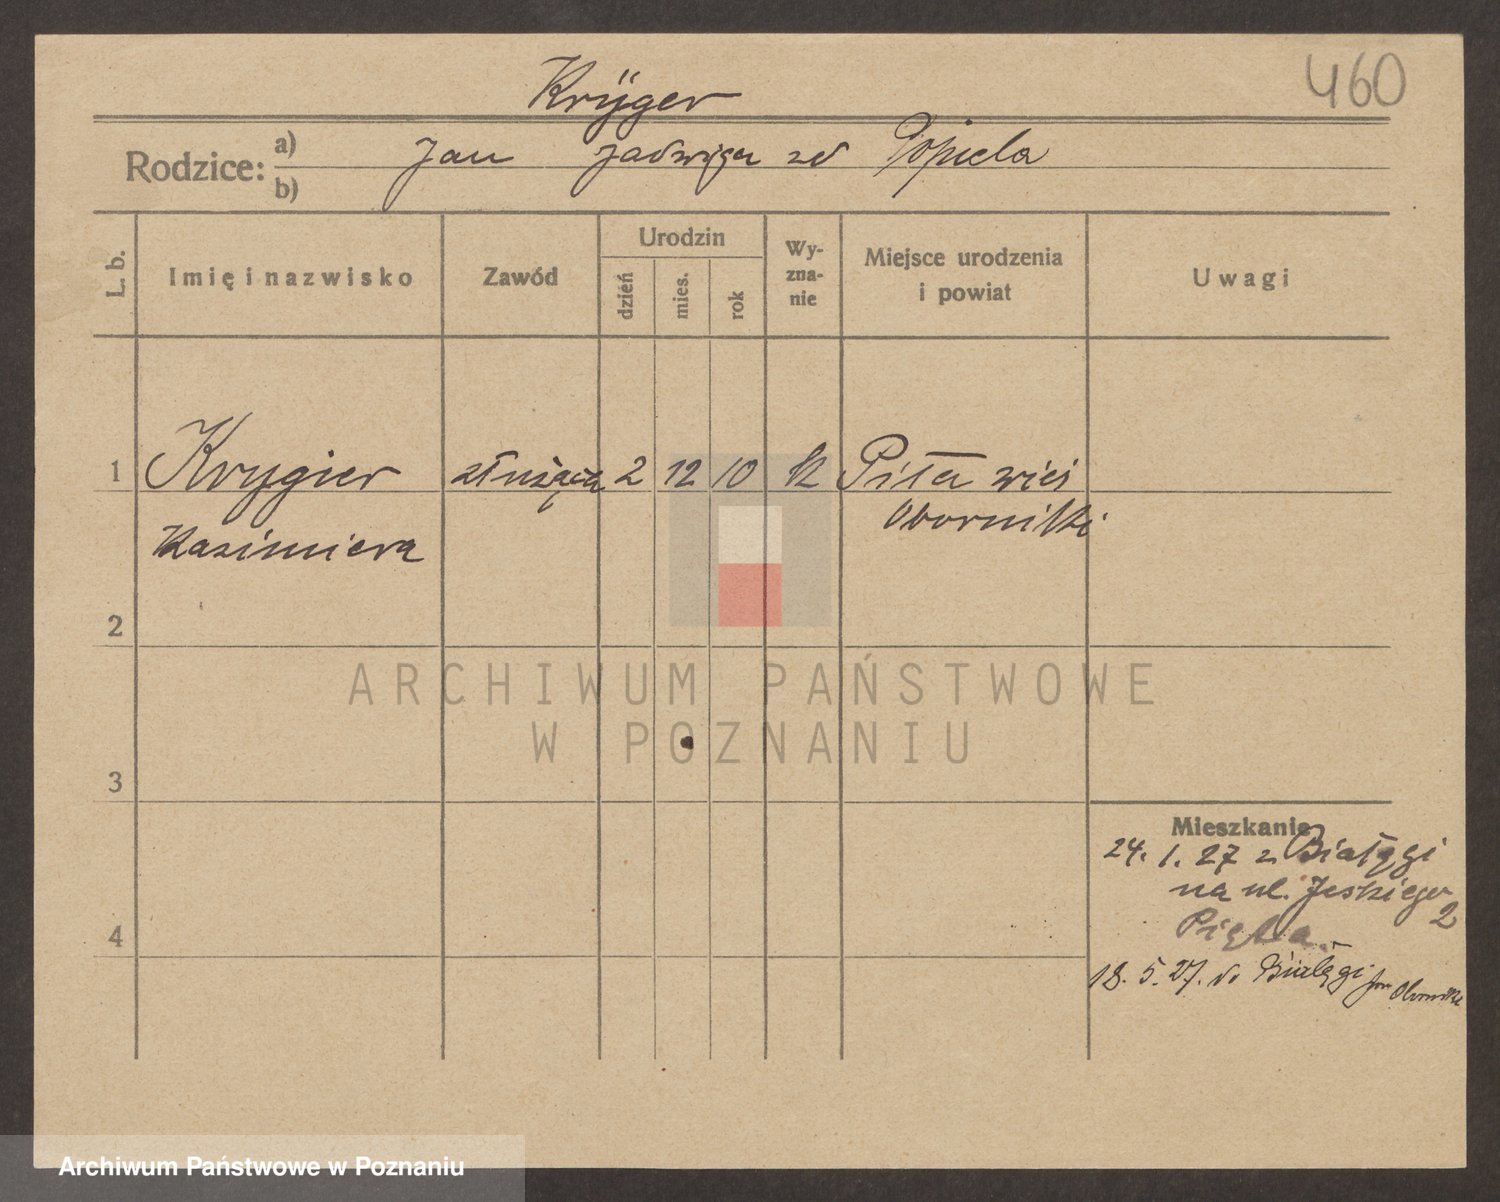 460
Krÿger
Rodzice: a) b) Jan Jadwiga zd Popiela
L. b. Imię i nazwisko Zawód Urodzin dzień mies. rok Wyznanie Miejsce urodzenia i powiat Uwagi
1 Krygier służąca 2 12 10 k Piła wieś
Kazimiera Oborniki
2
ARCHIWUM PAŃSTWOWE
W POZNANIU
3
Mieszkanie
24. 1. 27 z Białęgi
na ul. Jeskiego 2
4
18. 5. 27. do Białęgi pow Oborniki
Archiwum Państwowe w Poznaniu